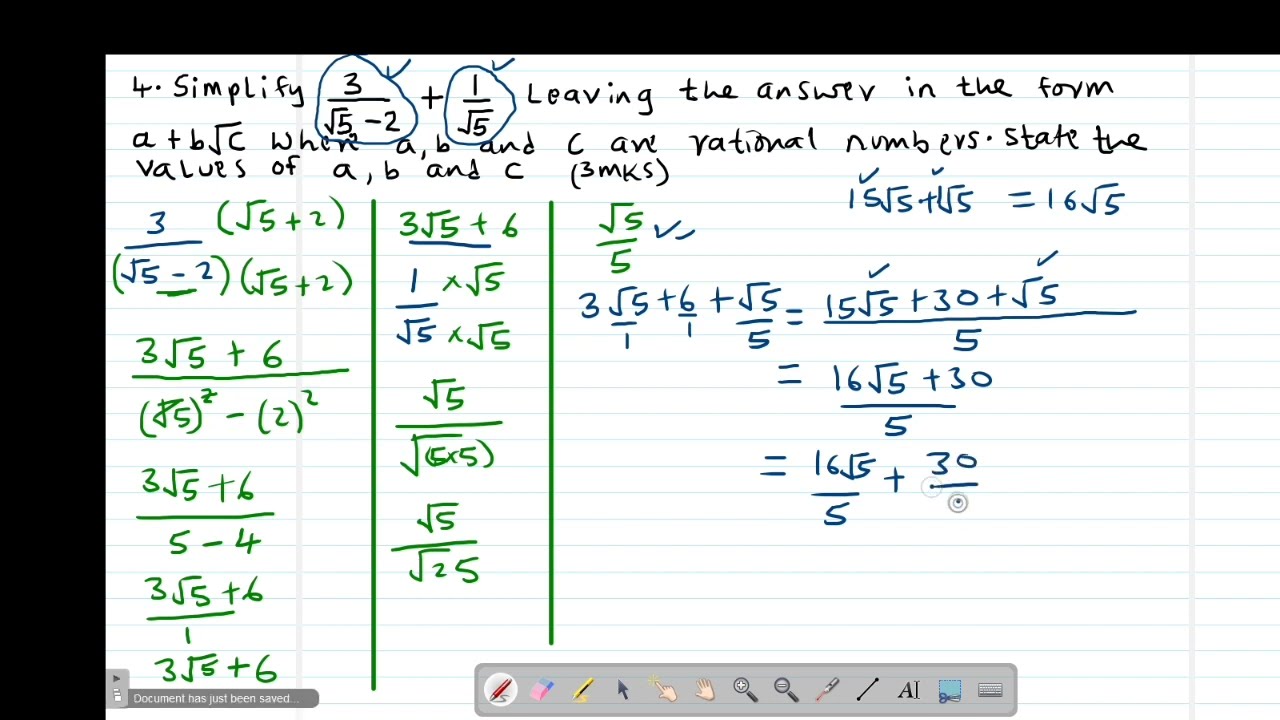 4. Simplify 3/(√5 - 2) + 1/√5 Leaving the answer in the form
a + b√c where a, b and c are rational numbers. State the
values of a, b and c (3mks)
3 (√5 + 2)
(√5 - 2) (√5 + 2)
3√5 + 6
(√5)² - (2)²
3√5 + 6
5 - 4
3√5 + 6
1
3√5 + 6
3√5 + 6
1 × √5
√5 × √5
√5
√(5×5)
√5
√25
√5
5
15√5 + 1√5 = 16√5
3√5/1 + 6/1 + √5/5 = (15√5 + 30 + √5)/5
= (16√5 + 30)/5
= 16√5/5 + 30
Document has just been saved...
AI